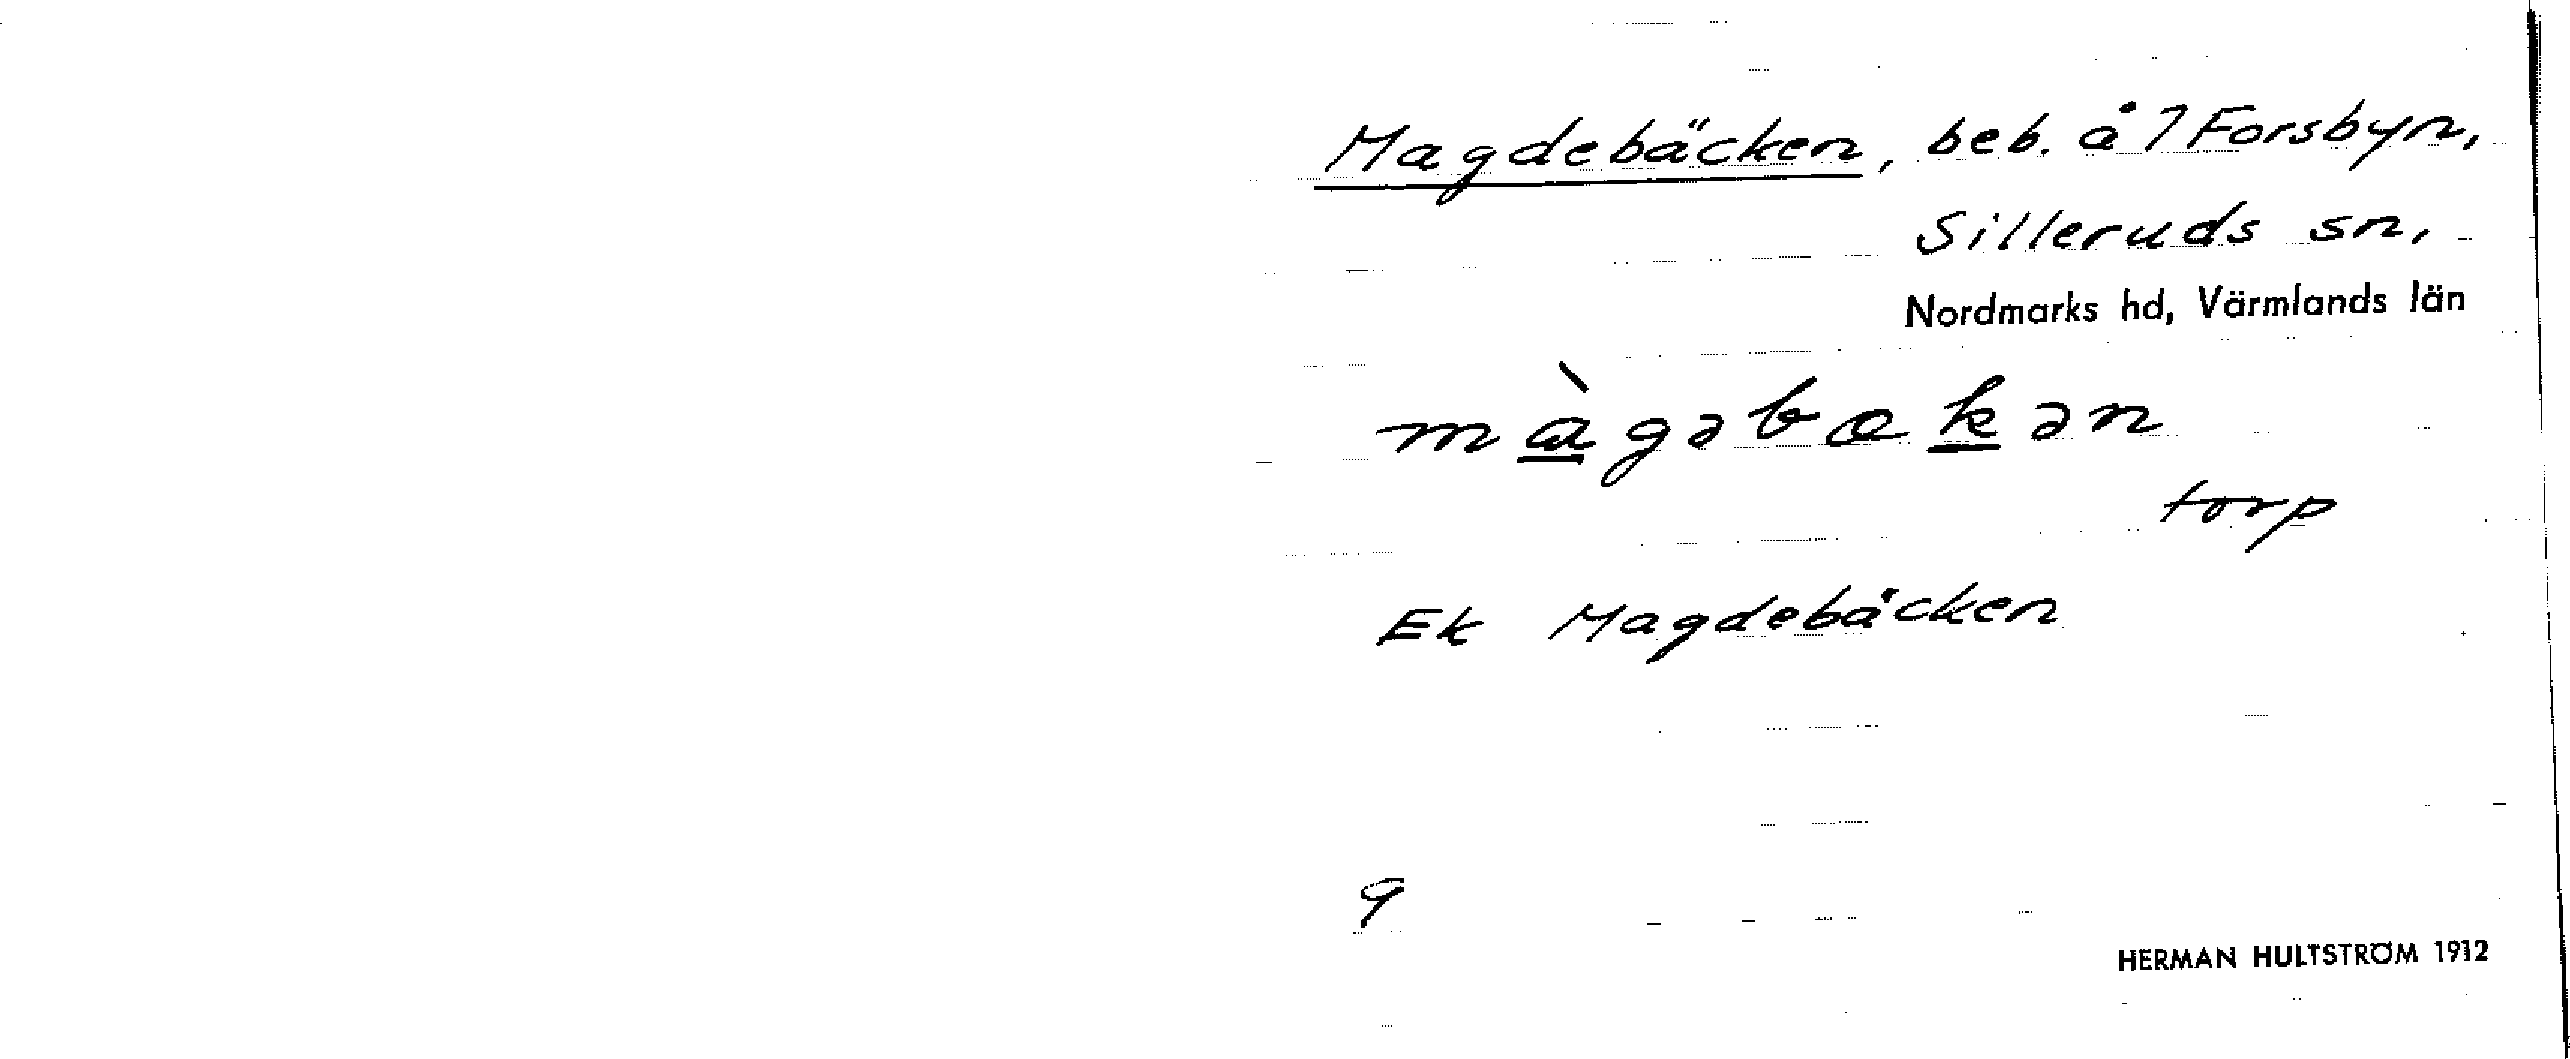 Magdebäcken, beb. å 1 Forsbyn,
Silleruds sn,
Nordmarks hd, Värmlands län
màgəbakən
torp
Ek Magdebäcken
9
HERMAN HULTSTRÖM 1912